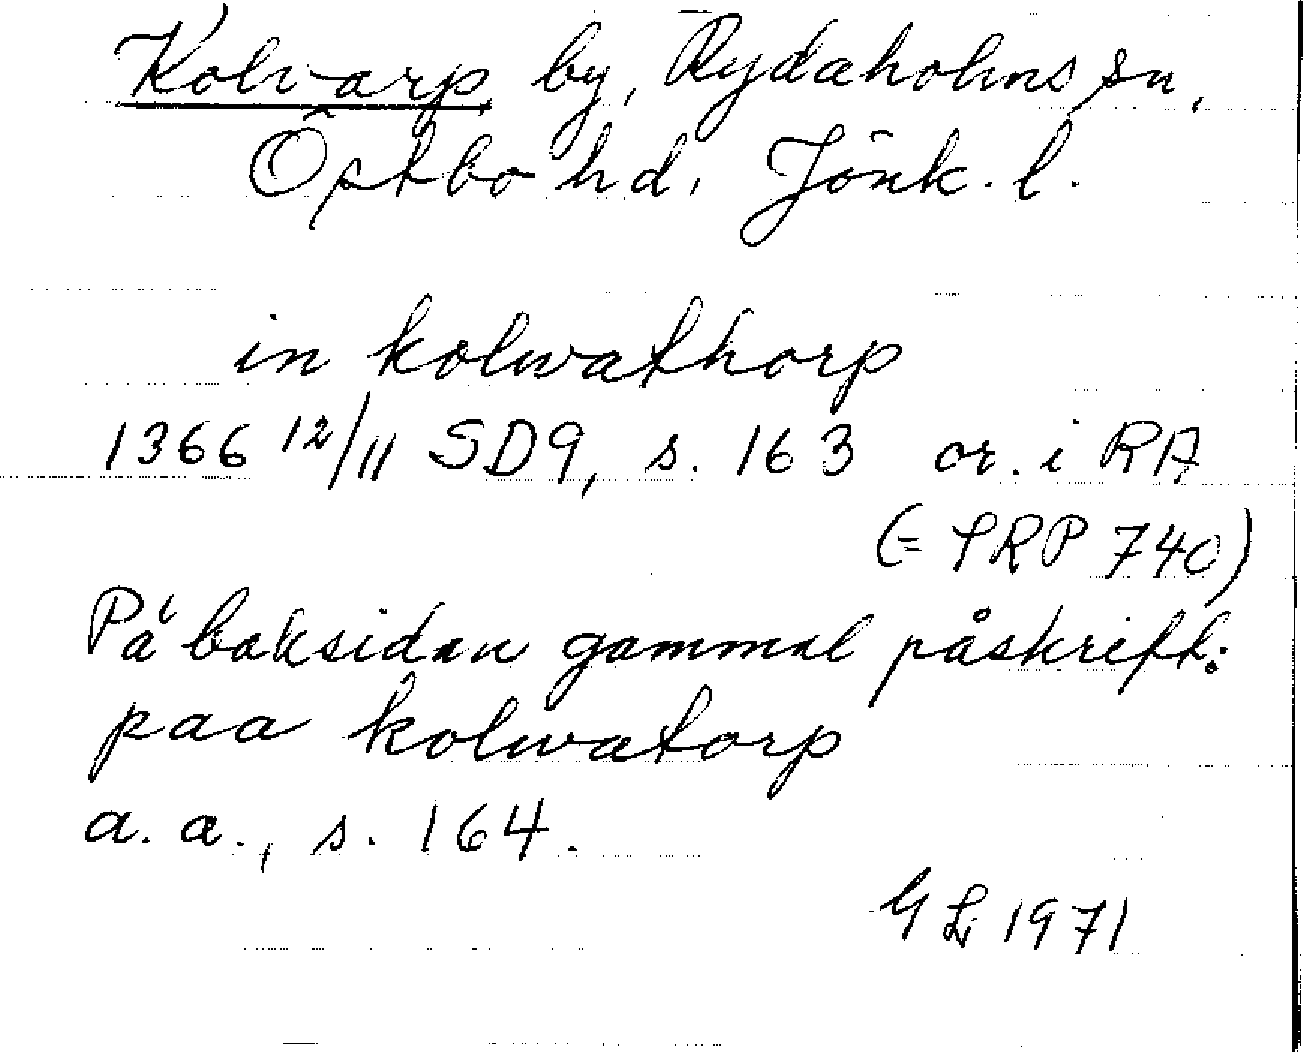 Kolvarp by, Rydaholms sn,
Östbo hd. Jönk. l.
in kolwathorp
1366 12/11 SD9, s. 163 or. i RA
(= SRP 740)
På baksidan gammal påskrift:
paa kolwatorp
a. a., s. 164.
GL 1971